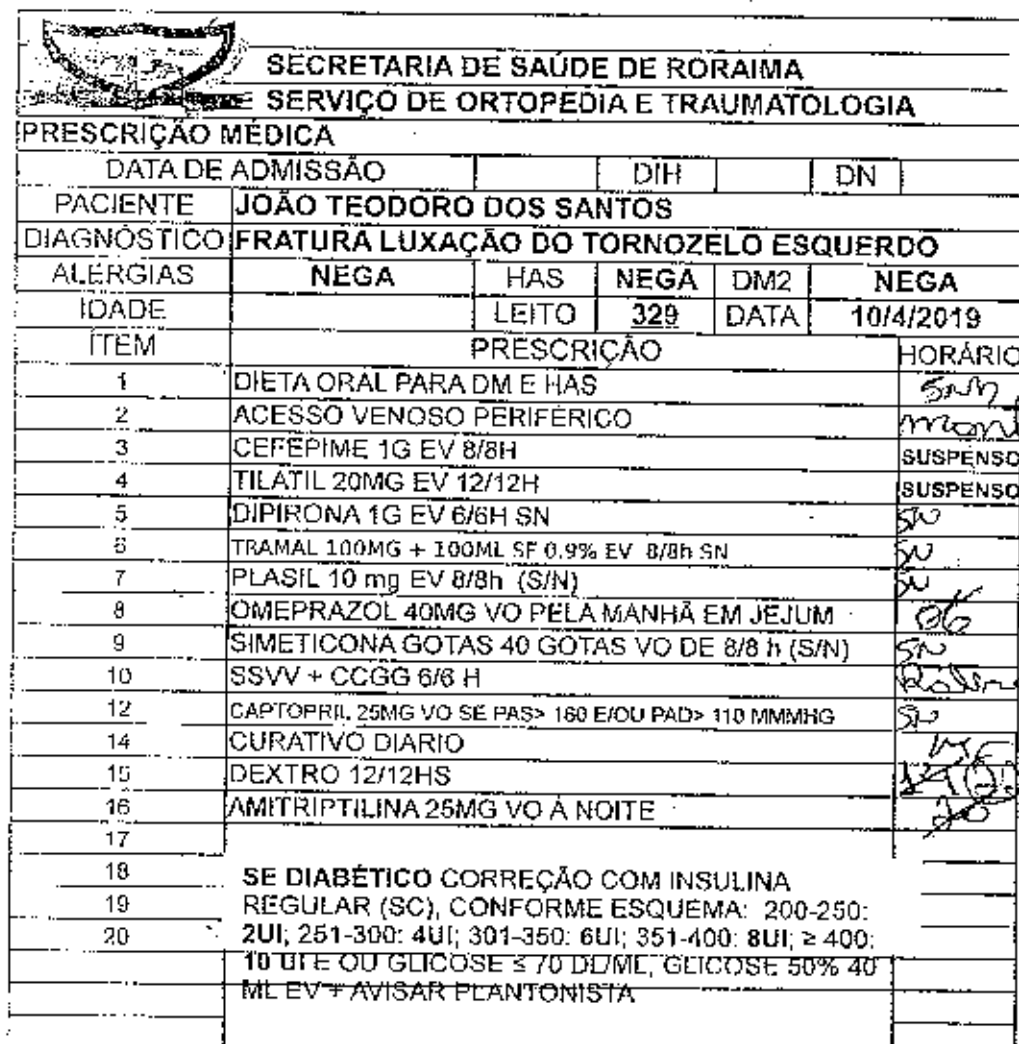 SECRETARIA DE SAÚDE DE RORAIMA
SERVIÇO DE ORTOPEDIA E TRAUMATOLOGIA
PRESCRIÇÃO MÉDICA
DATA DE ADMISSÃO DIH DN
PACIENTE JOÃO TEODORO DOS SANTOS
DIAGNÓSTICO FRATURA LUXAÇÃO DO TORNOZELO ESQUERDO
ALERGIAS NEGA HAS NEGA DM2 NEGA
IDADE LEITO 329 DATA 10/4/2019
ITEM PRESCRIÇÃO HORÁRIO
1 DIETA ORAL PARA DM E HAS
2 ACESSO VENOSO PERIFÉRICO
3 CEFEPIME 1G EV 8/8H SUSPENSO
4 TILATIL 20MG EV 12/12H SUSPENSO
5 DIPIRONA 1G EV 6/6H SN SN
6 TRAMAL 100MG + 100ML SF 0.9% EV 8/8h SN SN
7 PLASIL 10 mg EV 8/8h (S/N) SN
8 OMEPRAZOL 40MG VO PELA MANHÃ EM JEJUM 06
9 SIMETICONA GOTAS 40 GOTAS VO DE 8/8 h (S/N) SN
10 SSVV + CCGG 6/6 H
12 CAPTOPRIL 25MG VO SE PAS> 160 E/OU PAD> 110 MMMHG SN
14 CURATIVO DIARIO
15 DEXTRO 12/12HS
16 AMITRIPTILINA 25MG VO À NOITE 20
17
18 SE DIABÉTICO CORREÇÃO COM INSULINA
19 REGULAR (SC), CONFORME ESQUEMA: 200-250:
20 2UI; 251-300: 4UI; 301-350: 6UI; 351-400: 8UI; ≥ 400:
10 UI E OU GLICOSE ≤ 70 DL/ML, GLICOSE 50% 40
ML EV + AVISAR PLANTONISTA